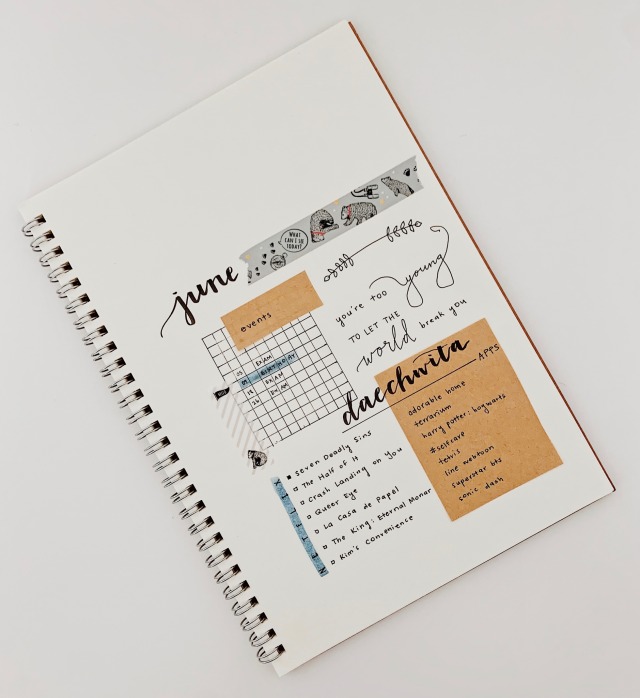 WHAT CAN I DO TODAY?
june
events
EXAM
BIRTHDAY
EXAM
EXAM
you're too young
TO LET THE
world break you
daechwita
APPS
adorable home
terrarium
harry potter: hogwarts
#selfcare
tetris
line webtoon
superstar bts
sonic dash
NETFLIX
Seven Deadly Sins
The Half of It
Crash Landing on You
Queer Eye
La Casa de Papel
The King: Eternal Monar
Kim's Convenience